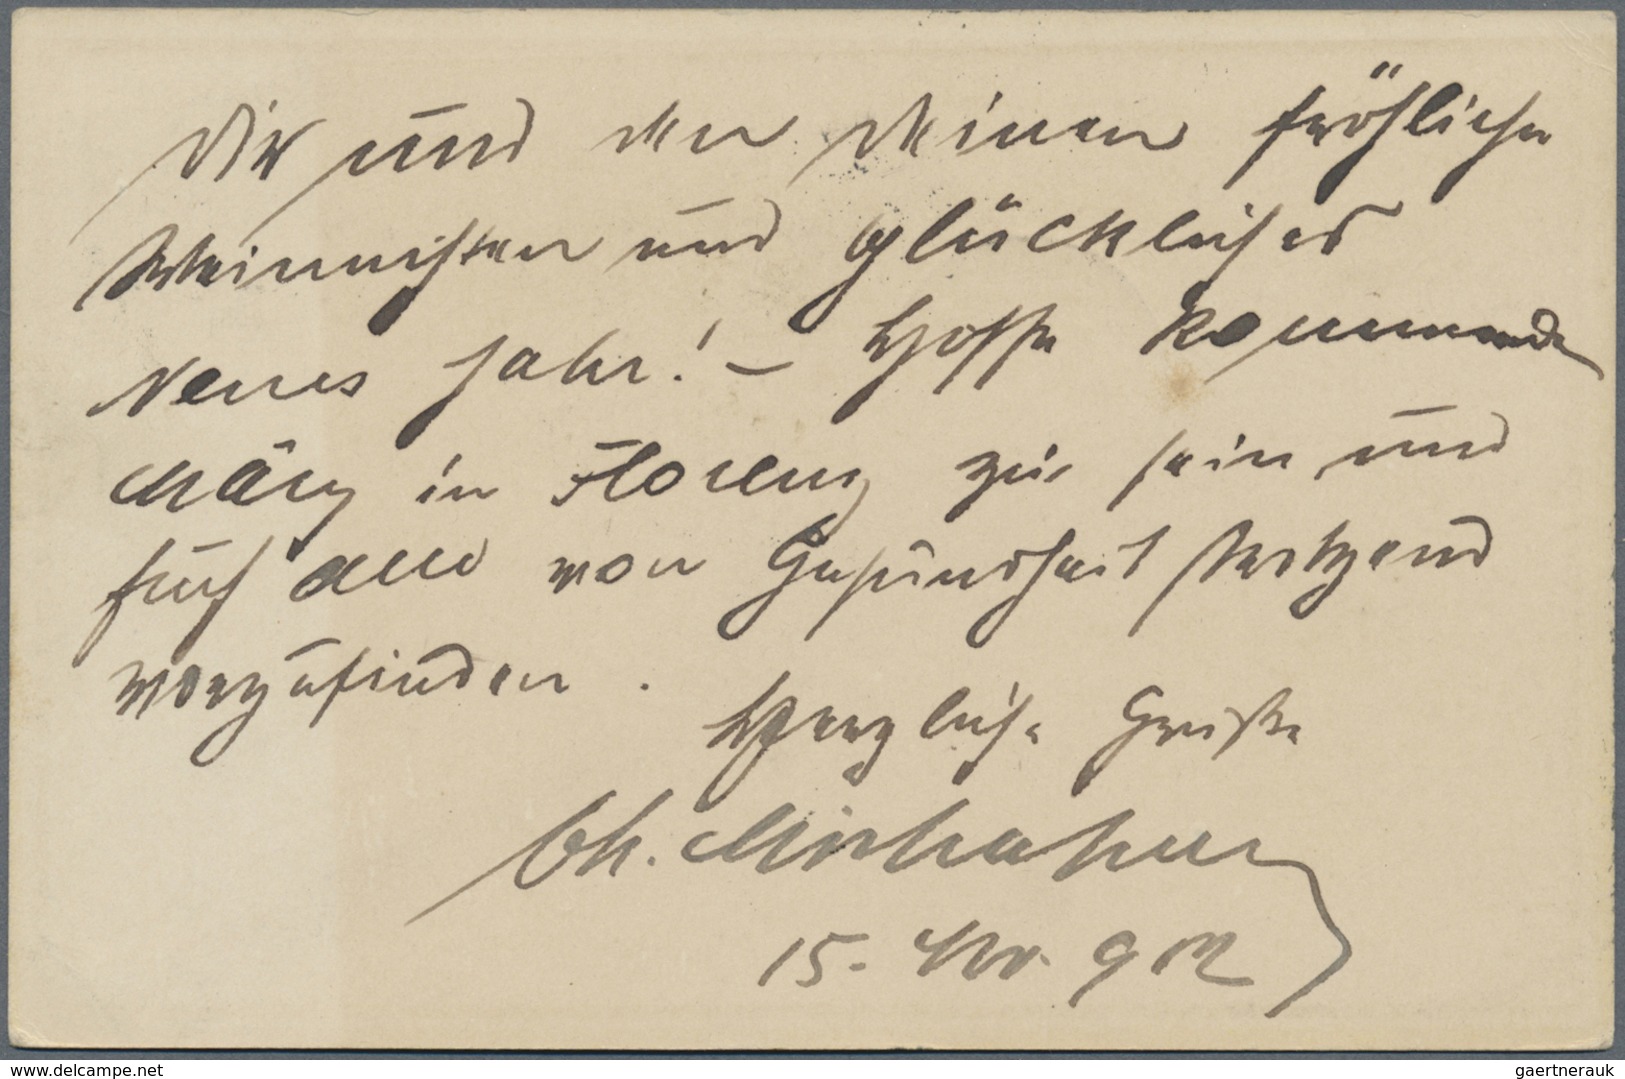 Dir und den Deinen fröhliche
Weihnachten und glückliches
neues Jahr! – Hoffe kommenden
März in Florenz zu sein und
Euch alle von Gesundheit strotzend
vorzufinden.
Herzliche Grüße
15. Nov. 92
the-saleroom.net
gaertnerauk